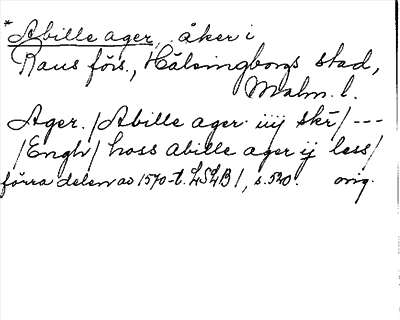 *Abille ager, åker i
Raus förs., Hälsingborgs stad,
Malm. l.
Ager. / Abille ager iiij skr / ---
/ Engh / hoss abille ager ij less /
förra delen av 1570-t. LSLB 1, s. 520. orig.